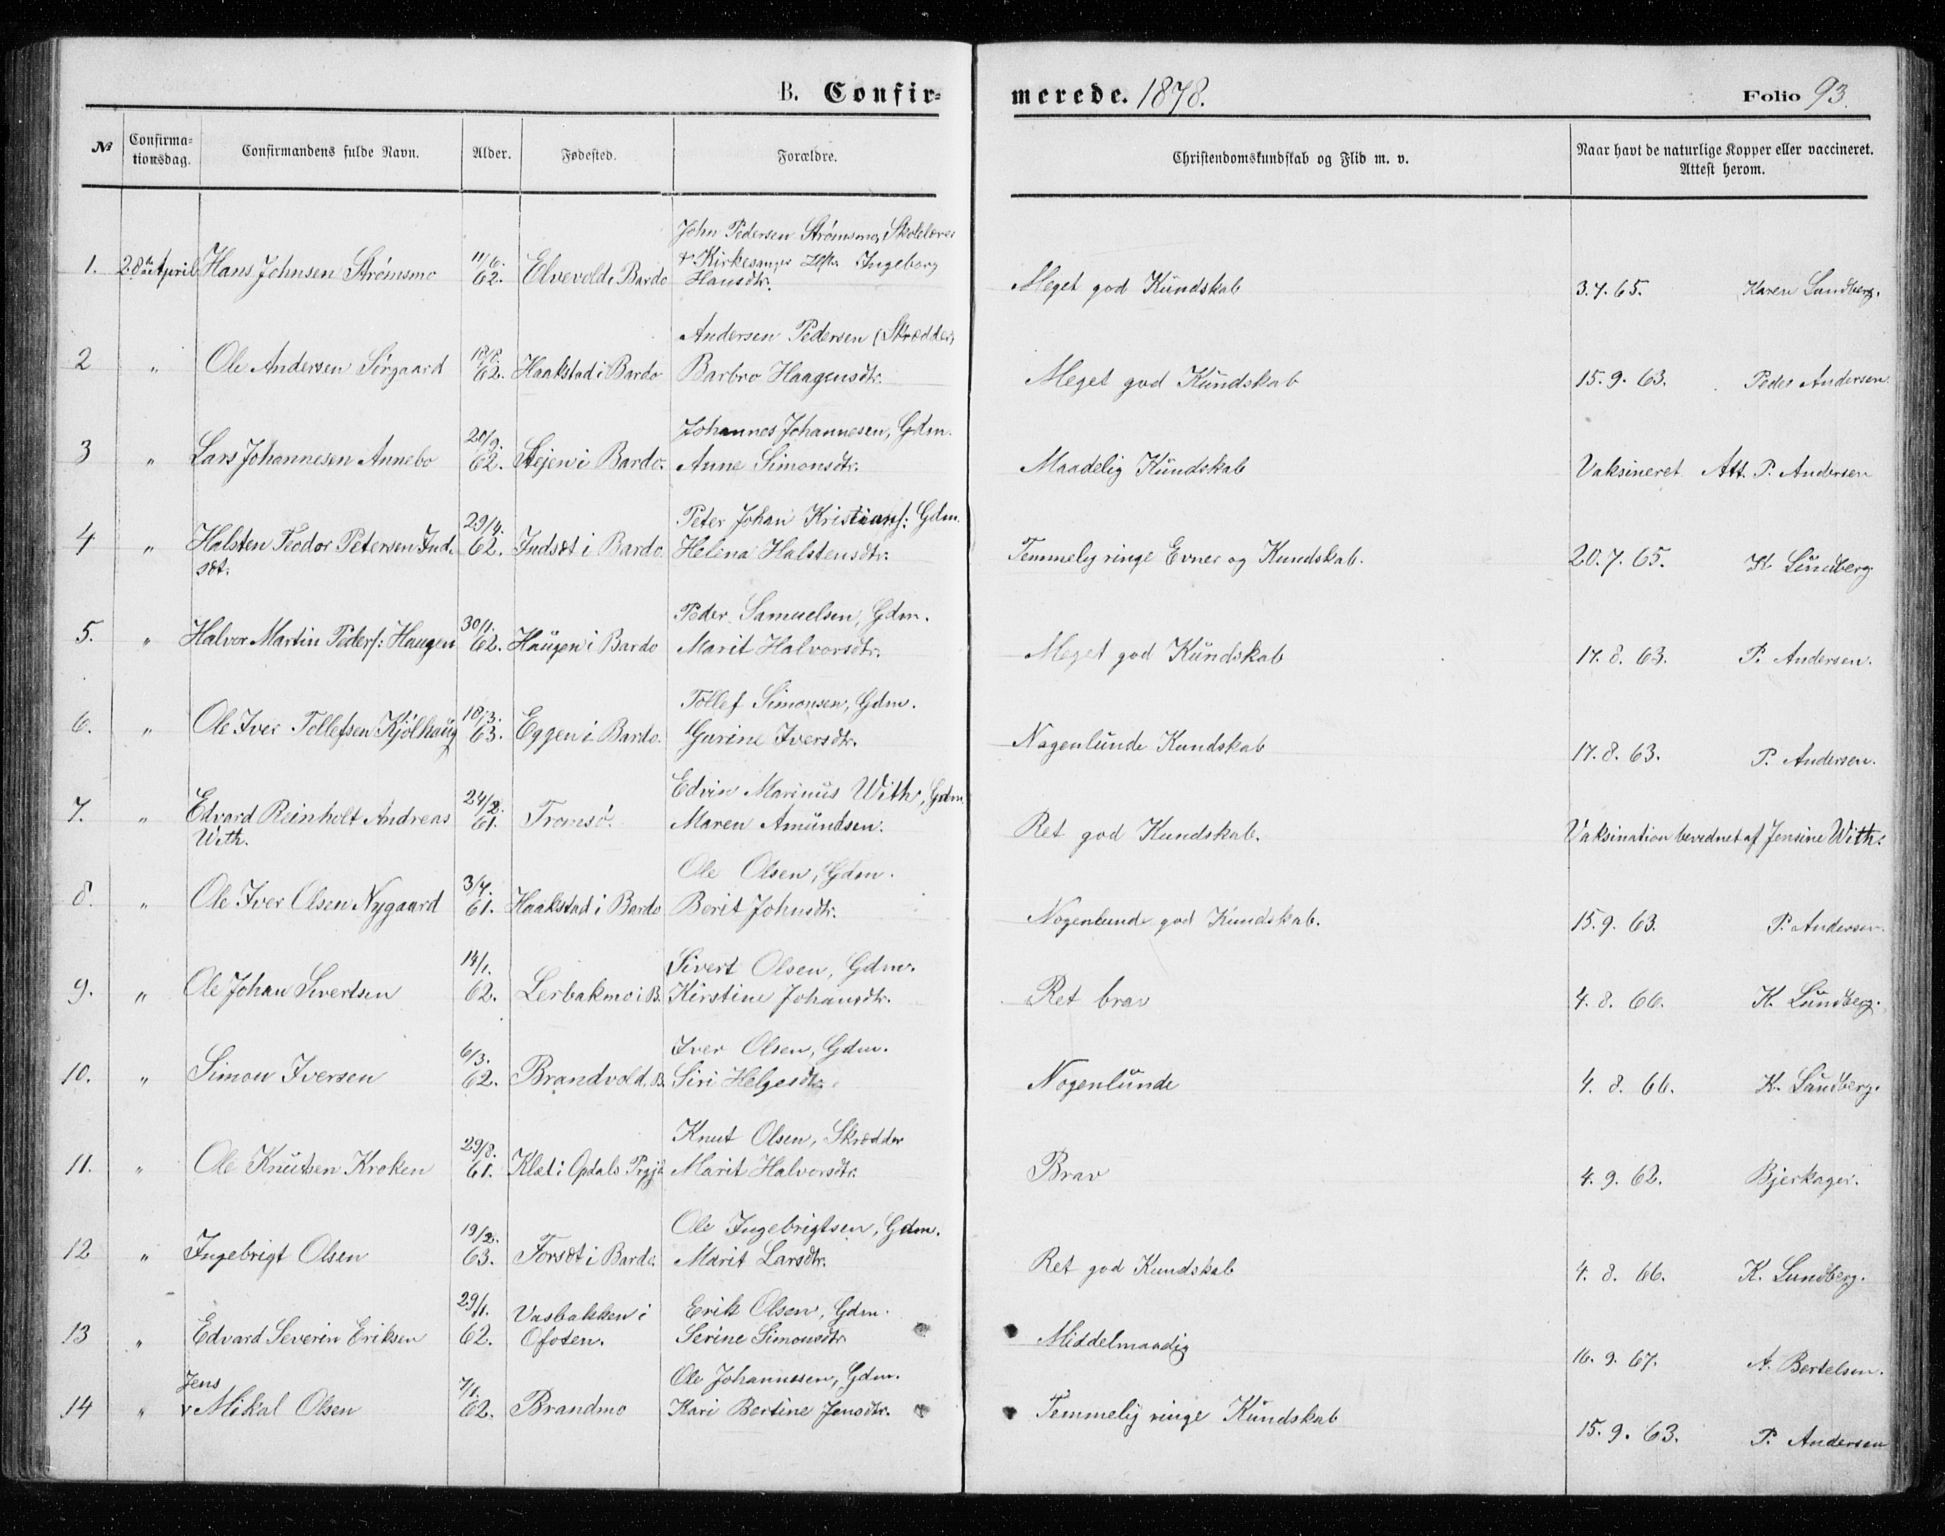 B. Confir- merede. 1878. Folio 93.
№ Confirma- tionsdag. Confirmandens fulde Navn. Alder. Fødested. Forældre. Christendomskundskab og Flid m. v. Naar havt de naturlige Kopper eller vaccineret. Attest herom.
John Pedersen Strømsmo, Skolelærer
1. 28de April Hans Johnsen Strømsmo 11/6. & Kirkesanger Ingeborg
62. Elvevold i Bardo Hansdtr. Meget god Kundskab 3.7.65. Karen Lundberg.
Andersen Pedersen (Skrædder)
2 " Ole Andersen Sørgaard 62. Haakstad i Bardo Barbro Haagensdtr. Meget god Kundskab 15.9.63. Peder Andersen.
20/9. Johannes Johannesen, Gdm.
3 " Lars Johannesen Annebo 62. Stejen i Bardo. Anne Simonsdtr. Maadelig Kundskab Vaksineret Att. P. Andersen
29/4. Peter Johan Kristians: Gdm.
4 " Halsten Teodor Petersen Ind- 62. Indsæt i Bardo. Helena Halstensdtr. Temmelig ringe Evner og Kundskab. 20.7.65. K. Lundberg
sæt.
30/1. Peder Samuelsen, Gdm.
5. " Halvor Martin Peders: Haugen 62. Haugen i Bardo Marit Halvorsdtr. Meget god Kundskab 17.8.63. P. Andersen.
18/3. Tollef Simonsen, Gdm.
6. " Ole Iver Tollefsen Kjølhaug 63. Eggen i Bardo. Gurine Iversdtr. Nogenlunde Kundskab 17.8.63. P. Andersen.
24/2. Edvin Marinus With, Gdm
7. " Edvard Reinholt Andreas 61. Tromsø. Maren Amundsen. Ret god Kundskab. Vaksination bevidnet af Jensine With.
With.
3/7. Ole Olsen, Gdm.
8. " Ole Iver Olsen Nygaard 61. Haakstad i Bardo Berit Johnsdtr. Nogenlunde god Kundskab. 15.9.63. P. Andersen.
14/1. Sivert Olsen, Gdm.
9. " Ole Johan Sivertsen 62. Lerbakmo i B. Kirstine Johansdtr. Ret brav 4.8.66. K. Lundberg.
6/3. Iver Olsen, Gdm.
10. " Simon Iversen 62. Brandvold. B. Siri Helgesdtr. Nogenlunde 4.8.66. K. Lundberg.
29/8. Knut Olsen, Skrædder
11. " Ole Knutsen Kroken 61. Klæt i Opdals Prgjd Marit Halvorsdtr. Brav 4.9.62. Bjerkager.
19/2. Ole Ingebrigtsen, Gdm.
12 " Ingebrigt Olsen 63. Forsæt i Bardo. Marit Larsdtr. Ret god Kundskab 4.8.66. K. Lundberg.
29/1. Vasbakken i Erik Olsen, Gdm.
13 " Edvard Severin Eriksen 62. Ofoten. Serine Simonsdtr. Middelmaadig 16.9.67. A. Bertelsen.
Jens 7/1. Ole Johannesen, Gdm.
14 " Mikal Olsen 62. Brandmo Kari Bertine Jensdtr. Temmelig ringe Kundskab 15.9.63. P. Andersen